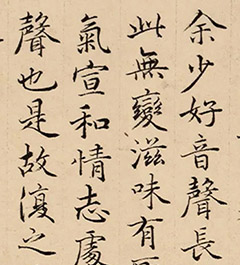 余少好音聲長
此無變滋味有
氣宣和情志處
聲也是故復之